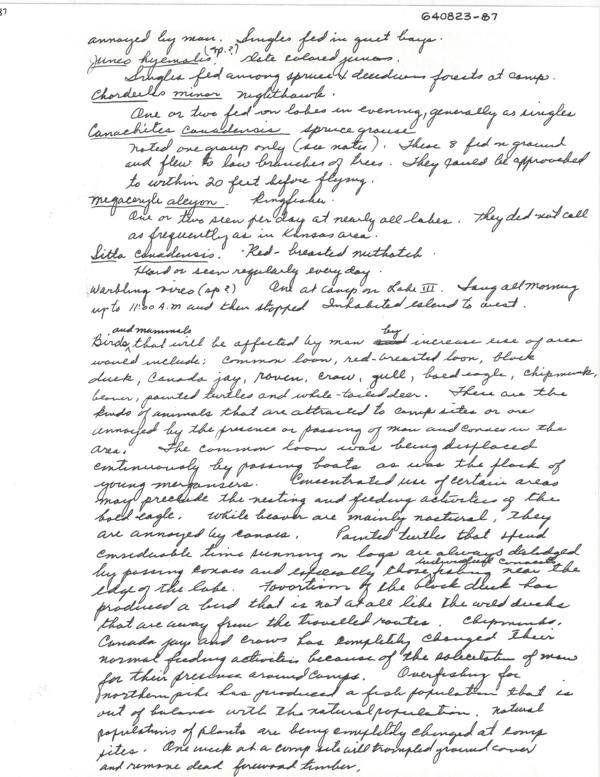 87
640823-87
annoyed by man. Singles fed in quiet bays.
Junco hyemalis (sp.?) Slate colored juncos.
Singles fed among spruce & deciduous forests at camp.
Chordeiles minor nighthawk.
One or two fed on lakes in evening, generally as singles
Canachites canadensis spruce grouse
noted one group only (see notes). These 8 fed on ground
and flew to low branches of trees. They could be approached
to within 20 feet before flying.
Megaceryle alcyon. Kingfisher.
One or two seen per day at nearly all lakes. They did not call
as frequently as in Kansas area.
Sitta canadensis. Red-breasted nuthatch.
Heard or seen regularly every day.
Warbling vireo (sp?) One at camp on Lake III. Sang all morning
up to 11:00 A.M and then stopped. Inhabited island to west.
and mammals
Birds, that will be affected by man by increase use of area
would include; common loon, red-breasted loon, black
duck, Canada jay, raven, crow, gull, bald eagle, chipmunk,
beaver, painted turtles and white-tailed deer. These are the
kinds of animals that are attracted to camp sites or are
annoyed by the presence or passing of man and canoes in the
area. The common loon was being displaced
continuously by passing boats as was the flock of
young mergansers. Concentrated use of certain areas
may preclude the nesting and feeding activities of the
bald eagle. While beaver are mainly nocturnal, they
are annoyed by canoes. Painted turtles that spend
considerable time sunning on logs are always dislodged
by passing canoes and especially those individual canoeists fishing near the
edge of the lake. Favortism of the black duck has
produced a bird that is not at all like the wild ducks
that are away from the travelled routes. Chipmunks,
Canada jays and crows has completely changed their
normal feeding activities because of the solicitation of man
for their presence around camps. Overfishing for
northern pike has produced a fish population that is
out of balance with the natural population. Natural
populations of plants are being completely changed at camp
sites. One week at a camp site will trampled ground cover
and remove dead firewood timber.